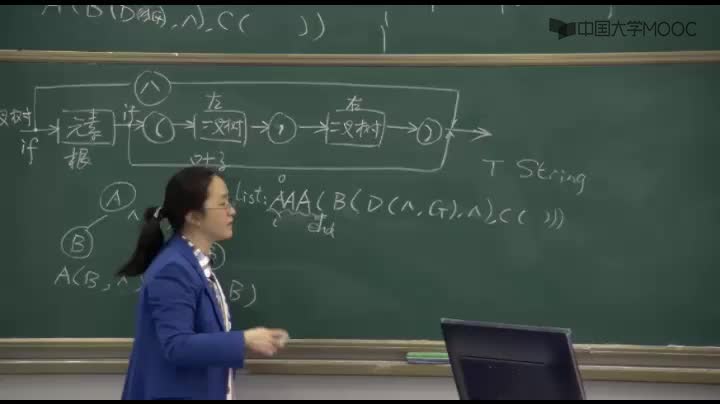 A(B(D(,G),∧),C( ))
中国大学MOOC
∧
左 右
叉树 if 元素 if ( 二叉树 , 二叉树 )
根 叶子
T String
0
list: AAA(B(D(∧,G),∧),C( )))
i end
A ∧
B B
A(B,∧) B)